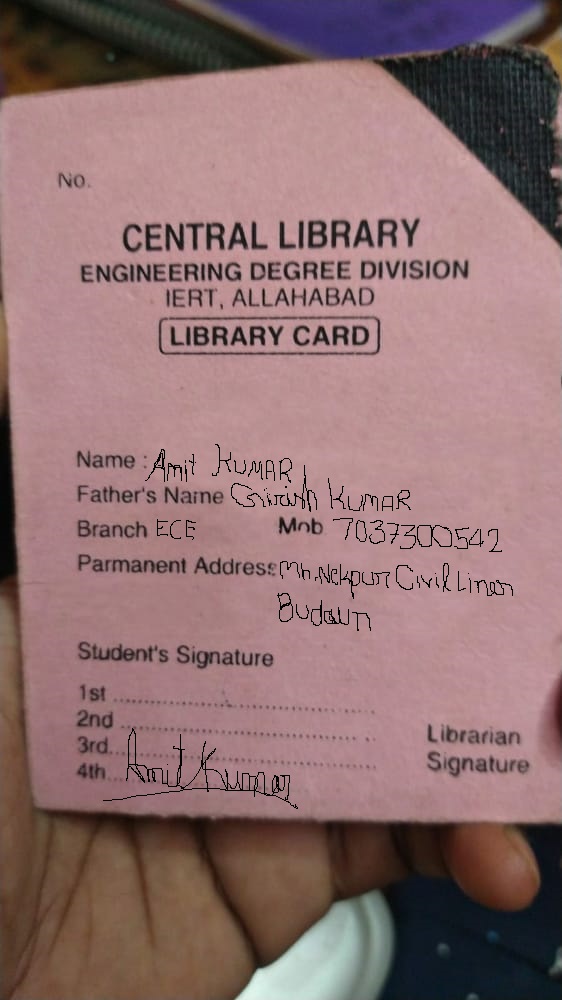 No.
CENTRAL LIBRARY
ENGINEERING DEGREE DIVISION
IERT, ALLAHABAD
LIBRARY CARD
Name : Amit KUMAR
Father's Name Girish KUMAR
Branch ECE Mob 7037300542
Parmanent Address Mh. Nekpur Civil Lines
Budaun
Student's Signature
1st ........................................
2nd ........................................
3rd...
4th... Amit Kumar
Librarian
Signature